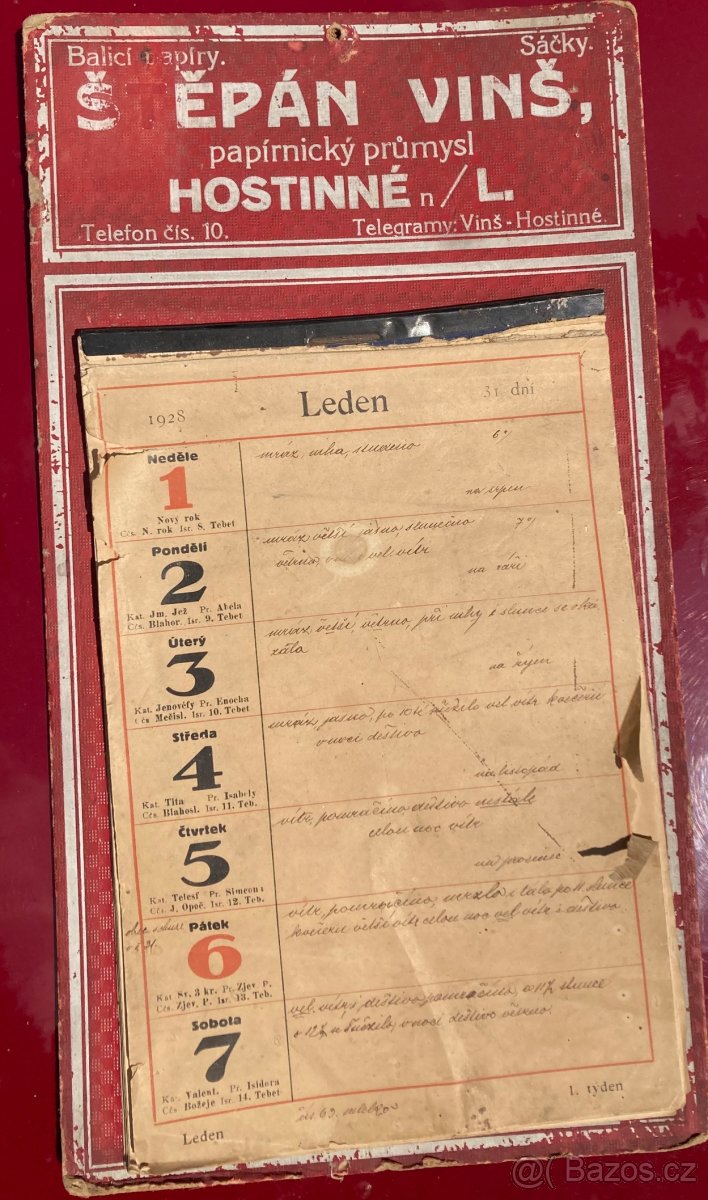 Balicí papíry. Sáčky.
ŠTĚPÁN VINŠ,
papírnický průmysl
HOSTINNÉ n/L.
Telefon čís. 10. Telegramy: Vinš-Hostinné.
1928 Leden 31 dní
Neděle
1
Nový rok
Čs. N. rok Isr. 8. Tebet
mráz, mha, slunečno 6°
na srpen
Pondělí
2
Kat. Jm. Jež Pr. Abela
Čs. Blahor. Isr. 9. Tebet
mráz větší jasno, slunečno 7°
větrno, vel. vítr
na září
Úterý
3
Kat. Jenovéfy Pr. Enocha
Čs Mečisl. Isr. 10. Tebet
mráz, větší, větrno, při mhy i slunce se uká
zalo
na říjen
Středa
4
Kat. Tita Pr. Isabely
Čs. Blahosl. Isr. 11. Teb.
mráz jasno, po vel. vítr
v noci deštivo
na listopad
Čtvrtek
5
Kat. Telesf Pr. Simeona
Čs. J. Opoč. Isr. 12. Teb.
vítr, pomračíno deštivo
celou noc vítr
na prosinec
Pátek
6
Kat Sv. 3 kr. Pr. Zjev. P.
Čs. Zjev. P. Isr. 13. Teb.
vítr, pomračíno, mrzlo i tálo po 11. slunce
větší vítr celou noc vel. vítr i deštivo
Sobota
7
Kat. Valent. Pr. Isidora
Čs Božeje Isr. 14. Tebet
vel. vítr i deštivo pomračíno, slunce
v noci deštivo větrno.
Leden
1. týden
@( Bazos.cz